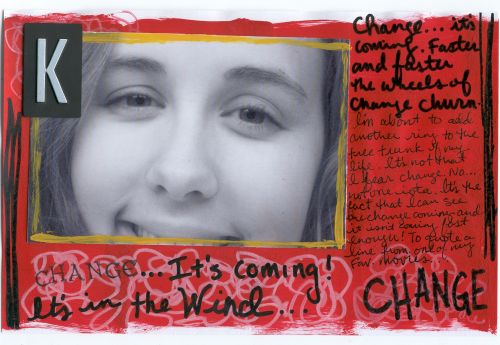 K
Change... it's
coming. Faster
and faster
the wheels of
change churn.
I'm about to add
another ring to the
tree trunk of my
life. It's not that
I fear change. No...
not one iota. It's the
fact that I can see
the change coming and
it isn't coming fast
enough! To quote a
line from one of my
fav. movies...
CHANGE
CHANGE... It's coming!
It's in the Wind...